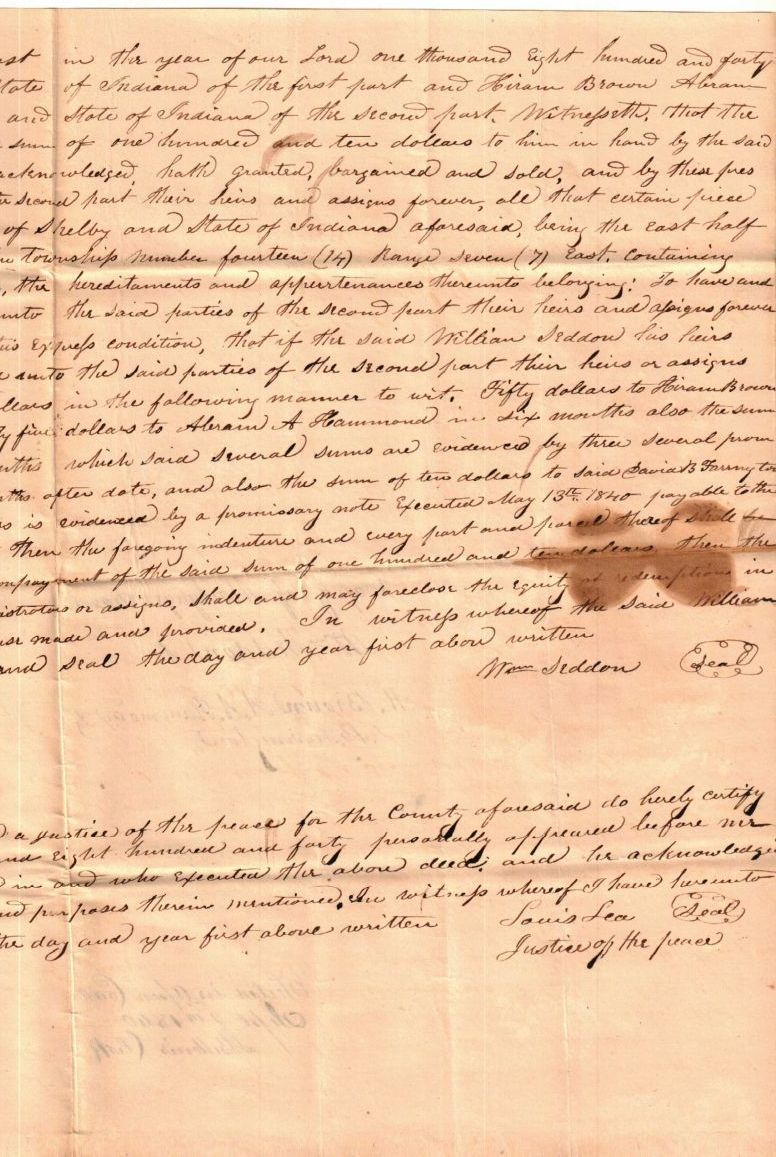 ust in the year of our Lord one thousand Eight hundred and forty
State of Indiana of the first part and Hiram Brown Abram
and State of Indiana of the second part. Witnesseth, that the
sum of one hundred and ten dollars to him in hand by the said
acknowledged, hath granted, bargained and sold, and by these pres
second part their heirs and assigns forever, all that certain piece
of Shelby and State of Indiana aforesaid, being the East half
township number fourteen (14) Range Seven (7) East. Containing
, the hereditaments and appertenances thereunto belonging: To have and
unto the said parties of the second part their heirs and assigns forever
this Express condition, that if the said William Seddon his heirs
unto the said parties of the second part their heirs or assigns
ollars in the following manner to wit. Fifty dollars to Hiram Brown
ty five dollars to Abram A Hammond in six months also the sum
onths which said several sums are evidenced by three several prom
nths after date, and also the sum of ten dollars to said David B Farrington
is evidenced by a promissory note Executed May 13th. 1840 payable to the
then the foregoing indenture and every part and parcel thereof shall be
onpayment of the said sum of one hundred and ten dollars, then the
istrators or assigns, shall and may foreclose the Equity of redemption in
ase made and provided. In witness whereof the said William
and seal the day and year first above written
Wm Seddon Seal
a Justice of the peace for the County aforesaid do hereby certify
and Eight hundred and forty personally appeared before me
in and who Executed the above deed, and he acknowledge
nd purposes therein mentioned. In witness whereof I have hereunto
the day and year first above written Louis Lea Seal
Justice of the peace